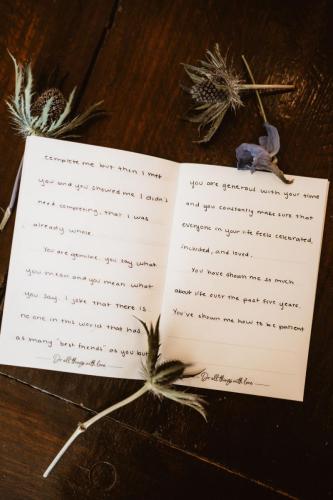 complete me but then I met
you and you showed me I didn't
need completing, that I was
already whole.
You are genuine. you say what
you mean and you mean what
you say. I joke that there is
no one in this world that has
as many "best friends" as you but
Do all things with love
you are generous with your time
and you constantly make sure that
everyone in your life feels celebrated,
included, and loved.
You have shown me so much
about life over the past five years.
You've shown me how to be patient
Do all things with love